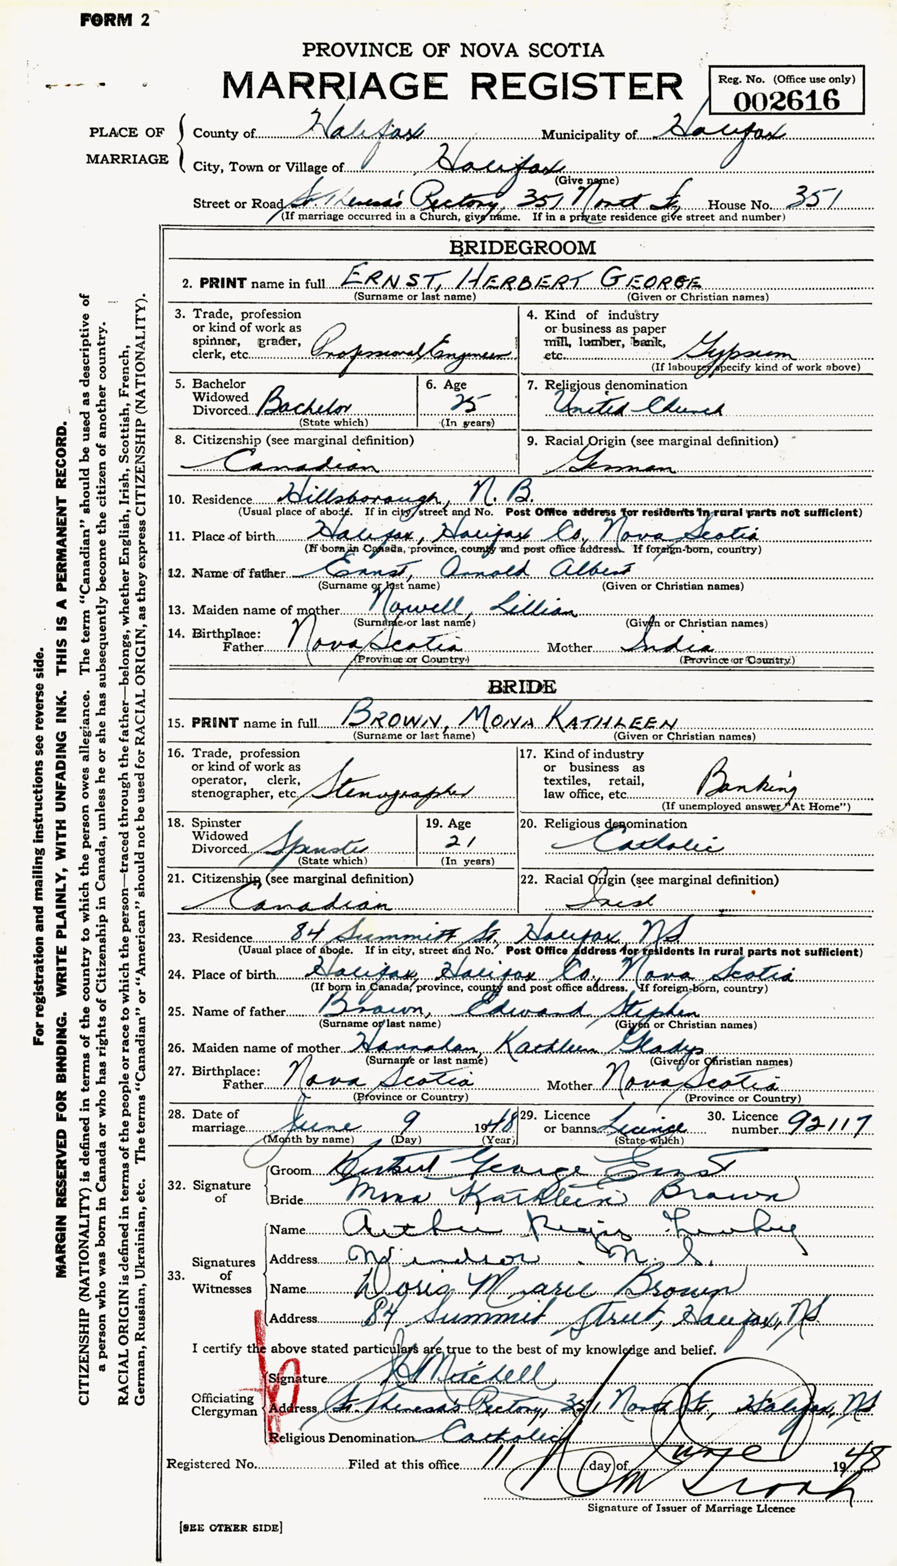 FORM 2
PROVINCE OF NOVA SCOTIA
MARRIAGE REGISTER
Reg. No. (Office use only)
002616
PLACE OF MARRIAGE
County of Halifax Municipality of Halifax
City, Town or Village of Halifax
(Give name)
Street or Road St. Theresa's Rectory, 351 North St, House No. 351
(If marriage occurred in a Church, give name. If in a private residence give street and number)
BRIDEGROOM
2. PRINT name in full ERNST, HERBERT GEORGE
(Surname or last name) (Given or Christian names)
3. Trade, profession
or kind of work as
spinner, grader,
clerk, etc. Professional Engineer
4. Kind of industry
or business as paper
mill, lumber, bank,
etc. Gypsum
(If labourer specify kind of work above)
5. Bachelor
Widowed
Divorced Bachelor
(State which)
6. Age
25
(In years)
7. Religious denomination
United Church
8. Citizenship (see marginal definition)
Canadian
9. Racial Origin (see marginal definition)
German
10. Residence Hillsborough, N. B.
(Usual place of abode. If in city, street and No. Post Office address for residents in rural parts not sufficient)
11. Place of birth Halifax, Halifax Co, Nova Scotia
(If born in Canada, province, county and post office address. If foreign-born, country)
12. Name of father Ernst, Arnold Albert
(Surname or last name) (Given or Christian names)
13. Maiden name of mother Nowell, Lillian
(Surname or last name) (Given or Christian names)
14. Birthplace:
Father Nova Scotia Mother India
(Province or Country) (Province or Country)
BRIDE
15. PRINT name in full BROWN, MONA KATHLEEN
(Surname or last name) (Given or Christian names)
16. Trade, profession
or kind of work as
operator, clerk,
stenographer, etc. Stenographer
17. Kind of industry
or business as
textiles, retail,
law office, etc. Banking
(If unemployed answer "At Home")
18. Spinster
Widowed
Divorced Spinster
(State which)
19. Age
21
(In years)
20. Religious denomination
Catholic
21. Citizenship (see marginal definition)
Canadian
22. Racial Origin (see marginal definition)
Irish
23. Residence 84 Summit St, Halifax, NS
(Usual place of abode. If in city, street and No. Post Office address for residents in rural parts not sufficient)
24. Place of birth Halifax, Halifax Co, Nova Scotia
(If born in Canada, province, county and post office address. If foreign-born, country)
25. Name of father Brown, Edward Stephen
(Surname or last name) (Given or Christian names)
26. Maiden name of mother Hannahan, Kathleen Gladys
(Surname or last name) (Given or Christian names)
27. Birthplace:
Father Nova Scotia Mother Nova Scotia
(Province or Country) (Province or Country)
28. Date of
marriage June 9 1948
(Month by name) (Day) (Year)
29. Licence
or banns License
(State which)
30. Licence
number 92117
32. Signature of
Groom Herbert George Ernst
Bride Mona Kathleen Brown
33. Signatures of Witnesses
Name Arthur
Address Windsor N. S.
Name Doris Marie Brown
Address 84 Summit Street, Halifax, NS
I certify the above stated particulars are true to the best of my knowledge and belief.
Officiating Clergyman
Signature Mitchell
Address St. Theresa's Rectory, 351 North St., Halifax, NS
Religious Denomination Catholic
Registered No. Filed at this office 11 day of June 1948
Signature of Issuer of Marriage Licence
[SEE OTHER SIDE]
For registration and mailing instructions see reverse side.
MARGIN RESERVED FOR BINDING. WRITE PLAINLY, WITH UNFADING INK. THIS IS A PERMANENT RECORD.
CITIZENSHIP (NATIONALITY) is defined in terms of the country to which the person owes allegiance. The term "Canadian" should be used as descriptive of
a person who was born in Canada or who has rights of Citizenship in Canada, unless he or she has subsequently become the citizen of another country.
RACIAL ORIGIN is defined in terms of the people or race to which the person—traced through the father—belongs, whether English, Irish, Scottish, French,
German, Russian, Ukrainian, etc. The terms "Canadian" or "American" should not be used for RACIAL ORIGIN, as they express CITIZENSHIP (NATIONALITY).